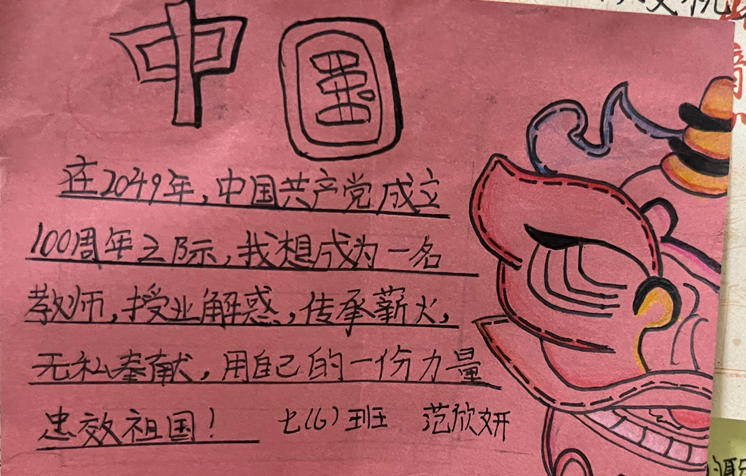 中国
在2049年，中国共产党成立
100周年之际，我想成为一名
教师，授业解惑，传承薪火，
无私奉献，用自己的一份力量
忠效祖国！ 七(6)班 范欣妍